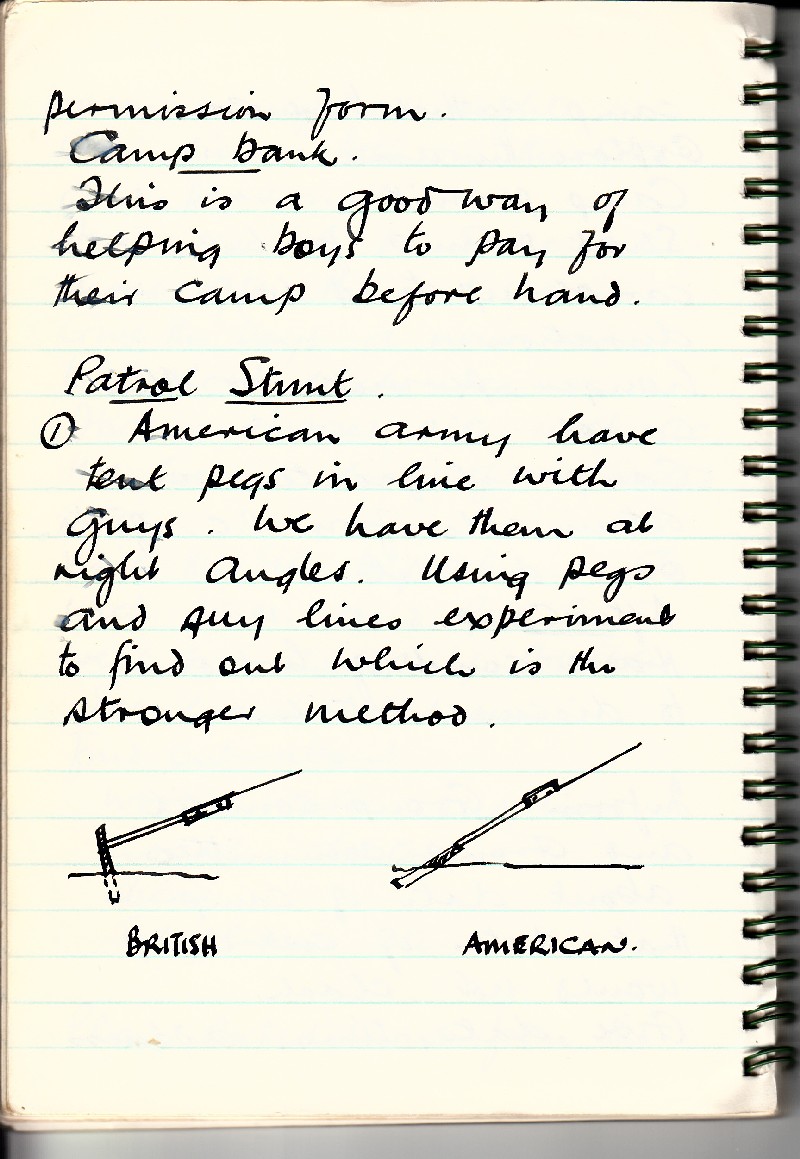 permission form.
Camp bank.
This is a good way of
helping boys to pay for
their camp before hand.
Patrol Stunt.
① American army have
tent pegs in line with
guys. We have them at
right angles. Using pegs
and guy lines experiment
to find out which is the
stronger method.
BRITISH
AMERICAN.